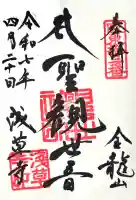 奉拝
金龍山
聖観世音
浅草寺
令和七年
四月二十日